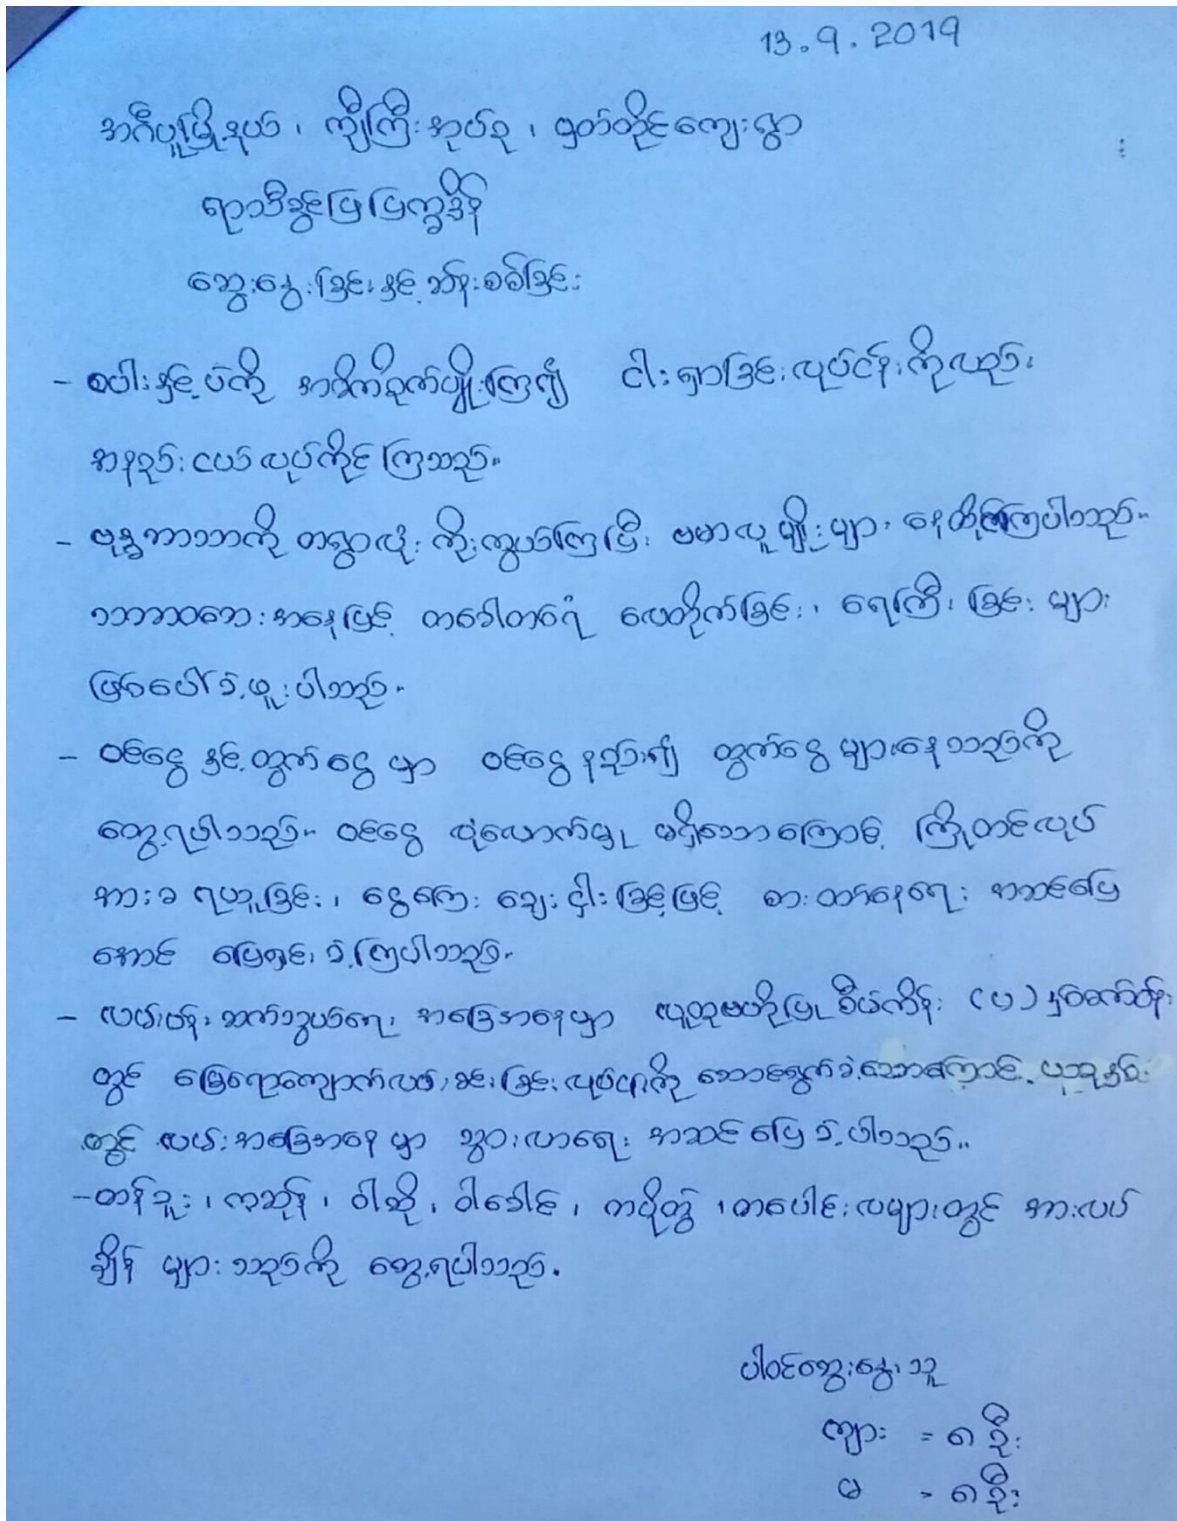 13.9.2019
အင်္ဂပူမြို့နယ်၊ ကျီကြီးအုပ်စု၊ မှတ်တိုင်ကျေးရွာ
ရာသီခွင်ပြပြက္ခဒိန်
ဆွေးနွေးခြင်းနှင့်ဆန်းစစ်ခြင်း
- စပါးနှင့်ပဲကို အဓိကစိုက်ပျိုးကြ၍ ငါးရှာခြင်းလုပ်ငန်းကိုလည်း
အနည်းငယ်လုပ်ကိုင်ကြသည်။
- ဗုဒ္ဓဘာသာကို တရွာလုံး ကိုးကွယ်ကြပြီး ဗမာလူမျိုးများ နေထိုင်ကြပါသည်။
သဘာဝဘေးအနေဖြင့် တခေါတရံ လေတိုက်ခြင်း၊ ရေကြီးခြင်း များ
ဖြစ်ပေါ်ခဲ့ဖူးပါသည်။
- ဝင်ငွေနှင့်ထွက်ငွေမှာ ဝင်ငွေနည်း၍ ထွက်ငွေများနေသည်ကို
တွေ့ရပါသည်။ ဝင်ငွေ လုံလောက်မှု မရှိသောကြောင့် ကြိုတင်လုပ်
အားခ ရယူခြင်း၊ ငွေကြေး ချေးငှါးခြင့်ဖြင့် စားဝတ်နေရေး အဆင်ပြေ
အောင် ဖြေရှင်းခဲ့ကြပါသည်။
- လမ်းပန်းဆက်သွယ်ရေး အခြေအနေမှာ လူထုဗဟိုပြုစီမံကိန်း (ပ) နှစ်ဆက်ဝန်း
တွင် မြေရောကျောက်လမ်းခင်းခြင်းလုပ်ငန်းကို ဆောင်ရွက်ခဲ့သောကြောင့် ယခုနှစ်
တွင် လမ်းအခြေအနေမှာ သွားလာရေး အဆင်ပြေခဲ့ပါသည်။
- တန်ခူး၊ ကဆုန်၊ ဝါဆို၊ ဝါခေါင်၊ တပို့တွဲ၊ တပေါင်းလများတွင် အားလပ်
ချိန် များသည်ကို တွေ့ရပါသည်။
ပါဝင်ဆွေးနွေးသူ
ကျား = ၈ ဦး
မ = ၈ ဦး